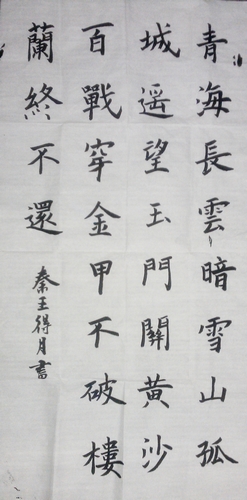 青海長雲暗雪山孤
城遥望玉門關黄沙
百戰穿金甲不破樓
蘭終不還
秦王得月書